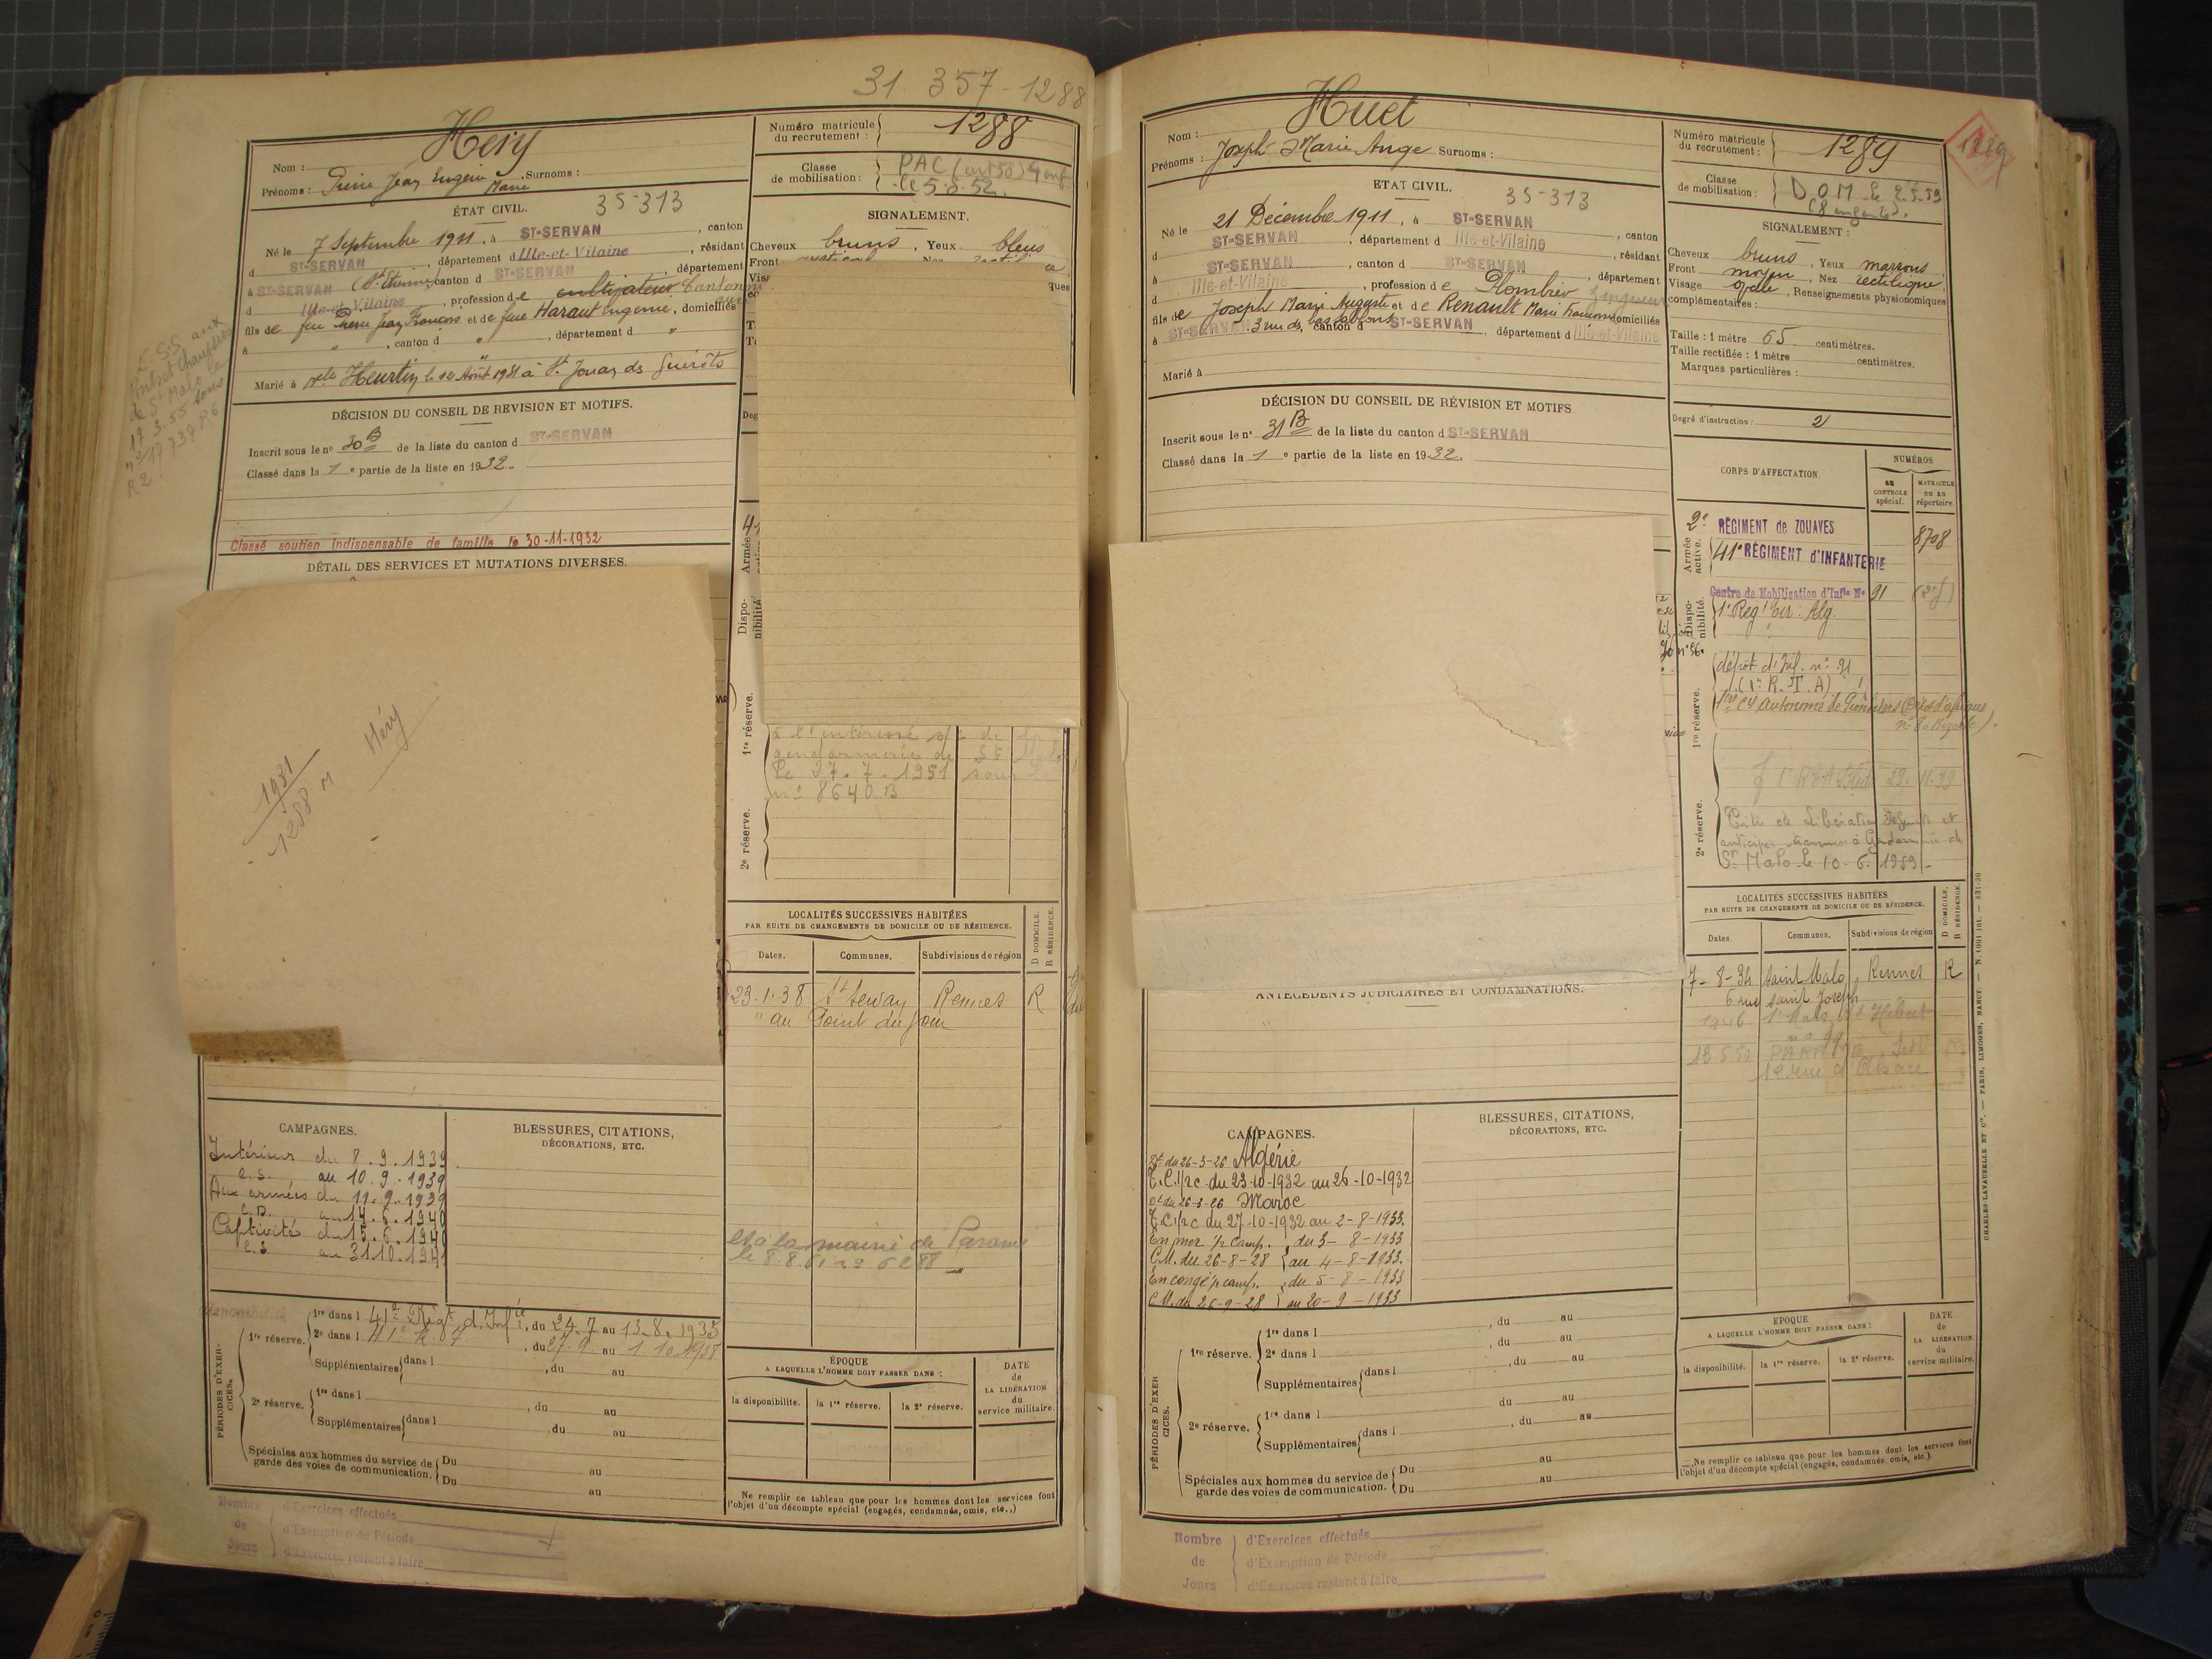 31. 357-1288
Héry
Nom :
Prénoms : Pierre Jean Eugène Marie , Surnoms :
Numéro matricule du recrutement : 1288
Classe de mobilisation : PAC (art 58) 4 enf
le 5.8.52
ÉTAT CIVIL.
35-313
Né le 7 Septembre 1911, à ST-SERVAN , canton
d ST-SERVAN , département d Ille-et-Vilaine , résidant
à ST-SERVAN (St Etienne), canton d ST-SERVAN , département
d Ille-et-Vilaine , profession de cultivateur Cantonnier
fils de feu Pierre Jean François et de feue Haraut Eugénie, domiciliés
à " , canton d " , département d "
Marié à Melle Heurtin le 12 Août 1931 à St. Jouan des Guérêts
SIGNALEMENT.
Cheveux bruns , Yeux bleus
Front
L. S.S. aux
Ponts et Chaussées
de St Malo le
17.3.55 sous
n° 17737 R6
R2.
DÉCISION DU CONSEIL DE REVISION ET MOTIFS.
Inscrit sous le no 30 B de la liste du canton d ST-SERVAN
Classé dans la 1 e partie de la liste en 1932.
Classé soutien indispensable de famille le 30-11-1932
DÉTAIL DES SERVICES ET MUTATIONS DIVERSES.
1931
1288 M
Héry
Armée
Dispo-nibilité
1re réserve.
à l'intéressé s/c de la
gendarmerie de St Malo
le 27.7.1951 sous le
n° 8640 B
2e réserve.
LOCALITÉS SUCCESSIVES HABITÉES
PAR SUITE DE CHANGEMENTS DE DOMICILE OU DE RÉSIDENCE.
D DOMICILE.
R RÉSIDENCE.
Dates. Communes. Subdivisions de région
23.1.38 St Servan Rennes R
" au Point du Jour
le 8.8.61
CAMPAGNES.
Intérieur du 8.9.1939
C.S. au 10.9.1939
Aux armées du 11.9.1939
C.D. au 14.6.1940
Captivité du 15.6.1940
C.S. au 31.10.1941
BLESSURES, CITATIONS,
DÉCORATIONS, ETC.
PÉRIODES D'EXER-CICES.
1re réserve. 1re dans l 41e Régt d'Infie, du 24.7 au 13.8.1933
2e dans l 41e R.I , du 27.9 au 1 10 1938
Supplémentaires dans l , du au
2e réserve. 1re dans l , du au
Supplémentaires dans l , du au
Spéciales aux hommes du service de garde des voies de communication. Du au
Du au
ÉPOQUE
A LAQUELLE L'HOMME DOIT PASSER DANS :
la disponibilité. la 1re réserve. la 2e réserve.
DATE
de
LA LIBÉRATION
du
service militaire.
Ne remplir ce tableau que pour les hommes dont les services font
l'objet d'un décompte spécial (engagés, condamnés, omis, etc.,)
Nombre de Jours
d'Exercices effectués
d'Exemption de Période
d'Exercices restant à faire
Huet
Nom :
Prénoms : Joseph Marie Ange Surnoms :
Numéro matricule du recrutement : 1289
1289
Classe de mobilisation : D.O.M. le 2.5.59
(8 enfants).
ETAT CIVIL.
35-313
Né le 21 Décembre 1911, à ST-SERVAN , canton
d ST-SERVAN , département d Ille-et-Vilaine , résidant
à ST-SERVAN , canton d ST-SERVAN , département
d Ille-et-Vilaine , profession de Plombier Zingueur
fils de Joseph Marie Auguste et de Renault Marie Françoise domiciliés
à ST-SERVAN 3 rue des bas sablons, canton d ST-SERVAN , département d Ille-et-Vilaine
Marié à
SIGNALEMENT :
Cheveux bruns , Yeux marrons
Front moyen , Nez rectiligne
Visage ovale , Renseignements physionomiques
complémentaires :
Taille : 1 mètre 65 centimètres.
Taille rectifiée : 1 mètre centimètres.
Marques particulières :
Degré d'instruction : 2
DÉCISION DU CONSEIL DE RÉVISION ET MOTIFS
Inscrit sous le n° 31 B de la liste du canton d ST-SERVAN
Classé dans la 1 e partie de la liste en 1932.
CORPS D'AFFECTATION.
NUMÉROS
AU CONTROLE spécial.
MATRICULE OU AU répertoire.
Armée active.
2e REGIMENT de ZOUAVES 8708
41e REGIMENT d'INFANTERIE
Dispo-nibilité.
Centre de Mobilisation d'Infie N° 91
1er Regt Tir. Alg.
1re réserve.
dépôt d'Inf. n° 91
(1er R.T.A)
2e réserve.
29.11.39
St Malo le 10.6.1959
LOCALITÉS SUCCESSIVES HABITÉES
PAR SUITE DE CHANGEMENTS DE DOMICILE OU DE RÉSIDENCE.
D DOMICILE.
R RÉSIDENCE.
Dates. Communes. Subdivisions de région
7-8-34 Saint Malo Rennes R
6 rue Saint Joseph
1946 St Malo
13.5.50 PARAME
12 rue d'Alsace
ANTÉCÉDENTS JUDICIAIRES ET CONDAMNATIONS.
CAMPAGNES.
Dt du 26-3-26 Algérie
T.C. 1/2 c du 23-10-1932 au 26-10-1932
Dt du 26-3-26 Maroc
T.C. 1/2 c du 27-10-1932 au 2-8-1933.
En mer 1/2 camp. du 3-8-1933
C.M. du 26-8-28 au 4-8-1933.
En congé 1/2 camp. du 5-8-1933
C.M. du 26-9-28 au 20-9-1933
BLESSURES, CITATIONS,
DÉCORATIONS, ETC.
PÉRIODES D'EXER-CICES.
1re réserve. 1re dans l , du au
2e dans l , du au
Supplémentaires dans l , du au
2e réserve. 1re dans l du au
Supplémentaires dans l , du au
Spéciales aux hommes du service de garde des voies de communication. Du au
Du au
EPOQUE
A LAQUELLE L'HOMME DOIT PASSER DANS :
la disponibilité. la 1re réserve. la 2e réserve.
DATE
de
LA LIBÉRATION
du
service militaire.
Ne remplir ce tableau que pour les hommes dont les services font
l'objet d'un décompte spécial (engagés, condamnés, omis, etc.).
CHARLES-LAVAUZELLE ET Cie. — PARIS, LIMOGES, NANCY.
Nombre de Jours
d'Exercices effectués
d'Exemption de Période
d'Exercices restant à faire